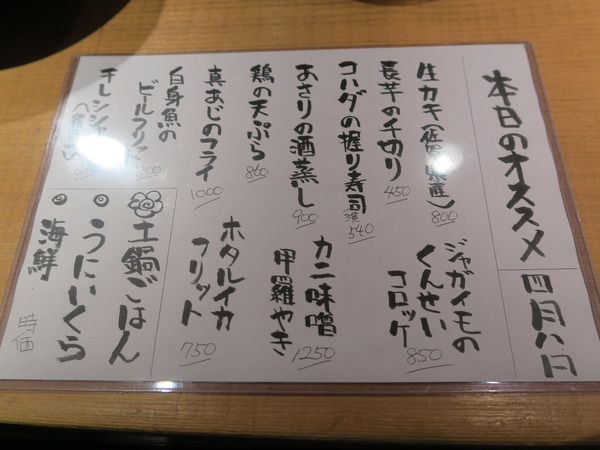 本日のオススメ
四月八日
生カキ(佐賀県産)
800
長芋の千切り
450
コハダの握り寿司
540
あさりの酒蒸し
900
鶏の天ぷら
860
真あじのフライ
1000
白身魚の
ビールフリット
ジャガイモの
くんせい
コロッケ
850
カニ味噌
甲羅やき
1250
ホタルイカ
フリット
750
土鍋ごはん
うにいくら
海鮮
時価